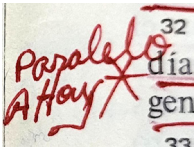 Paralelo
A Hoy *
32
día
gen
33